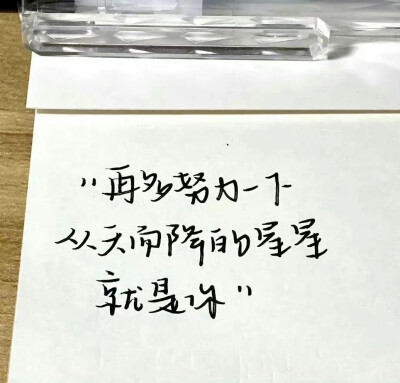 "再多努力一下
从天而降的星星
就是你"